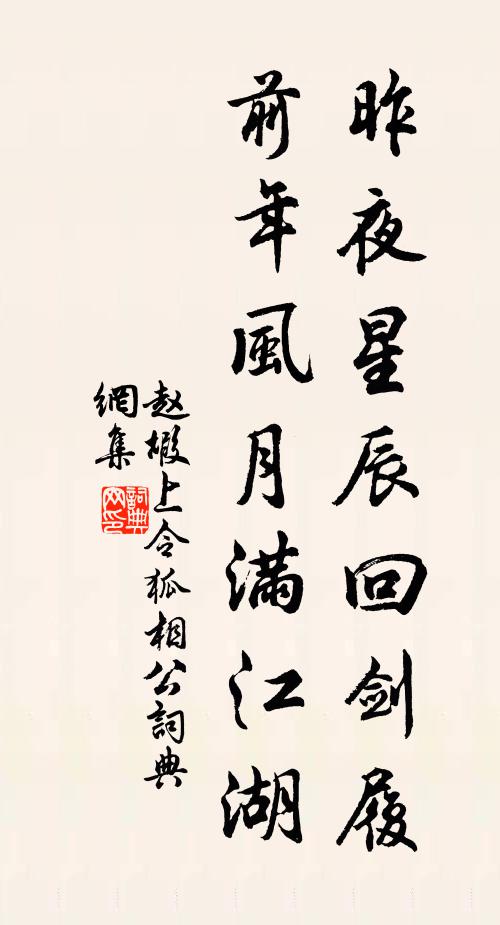 昨夜星辰回剑履
前年風月满江湖
赵嘏上令狐相公詞典
網集
詞典
网印